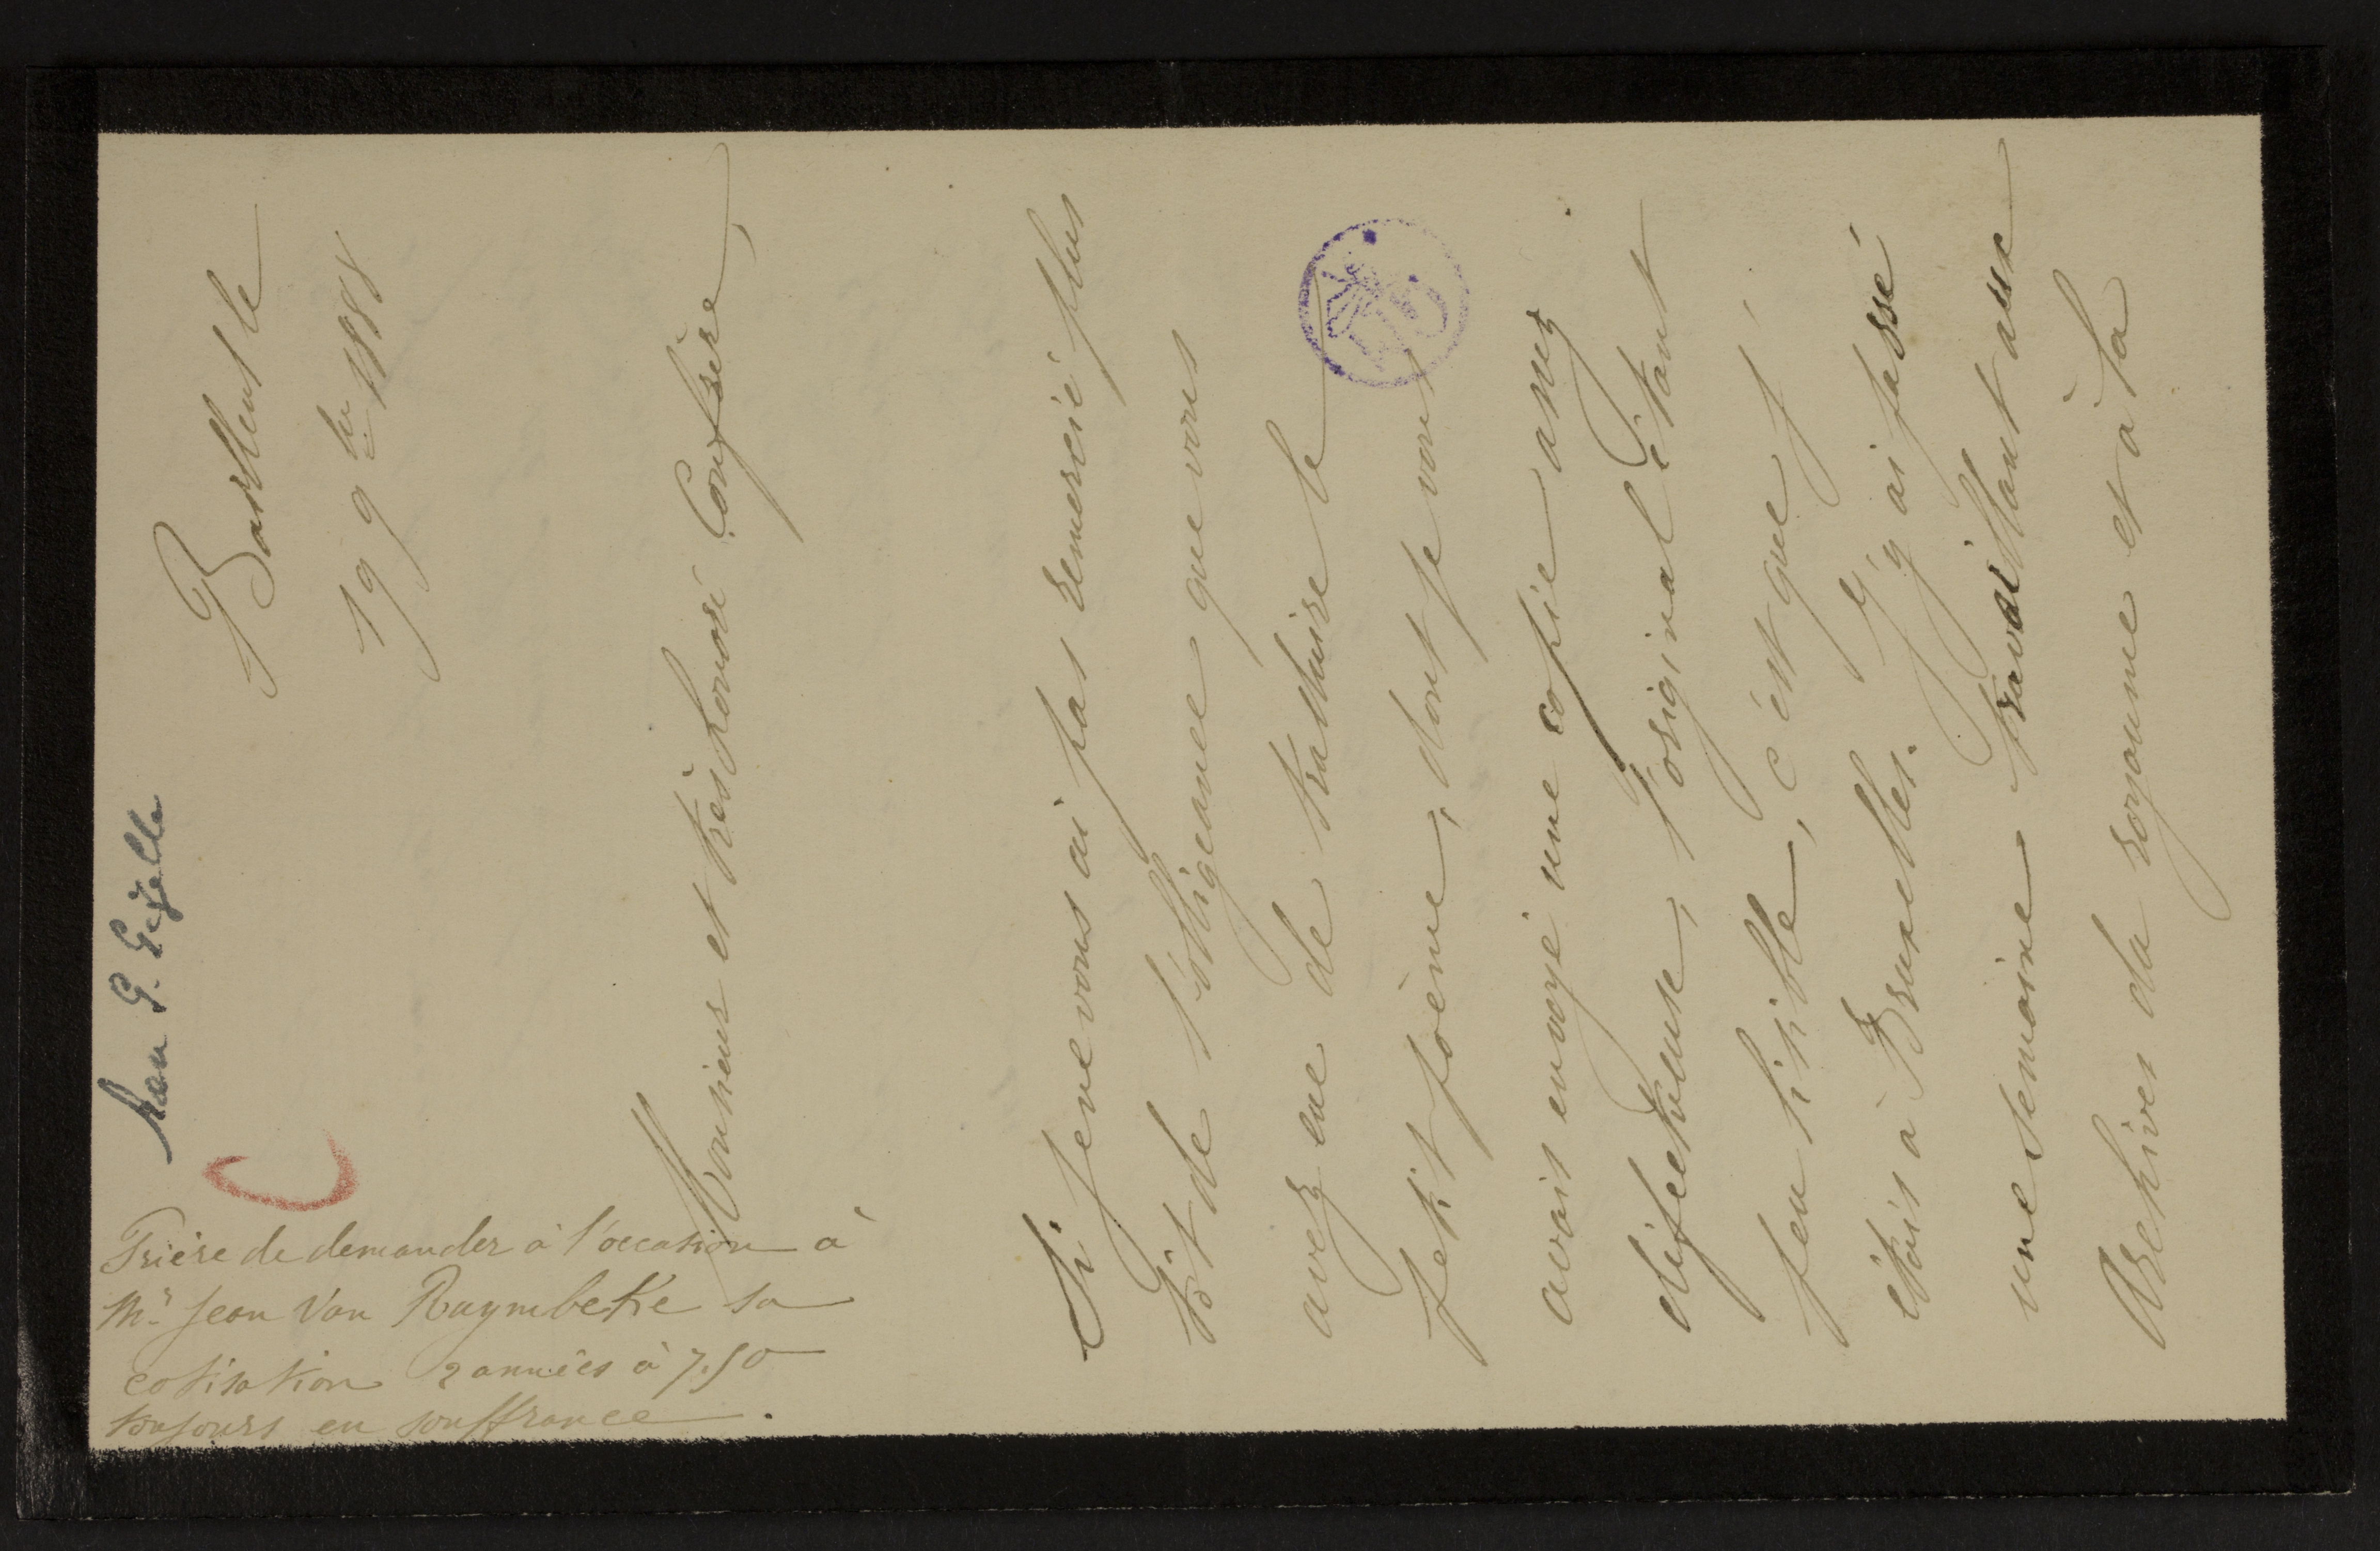 aan G. Gezelle
le
19 9bre 1888
Prière de demander à l'occasion à
Mr Jean Van Ruymbeke sa
cotisation 2 années à 7.50
toujours en souffrance.
Monsieur et très honoré Confrère,
Si je ne vous ai pas remercié plus
tôt de l'obligeance que vous
avez eue de traduire le
petit poème, dont je vous
avais envoyé une copie assez
défectueuse, l'original étant
peu lisible, c'est que j'
étais à Bruxelles. J'y ai passé
une semaine travaillant aux
Archives du royaume et à la